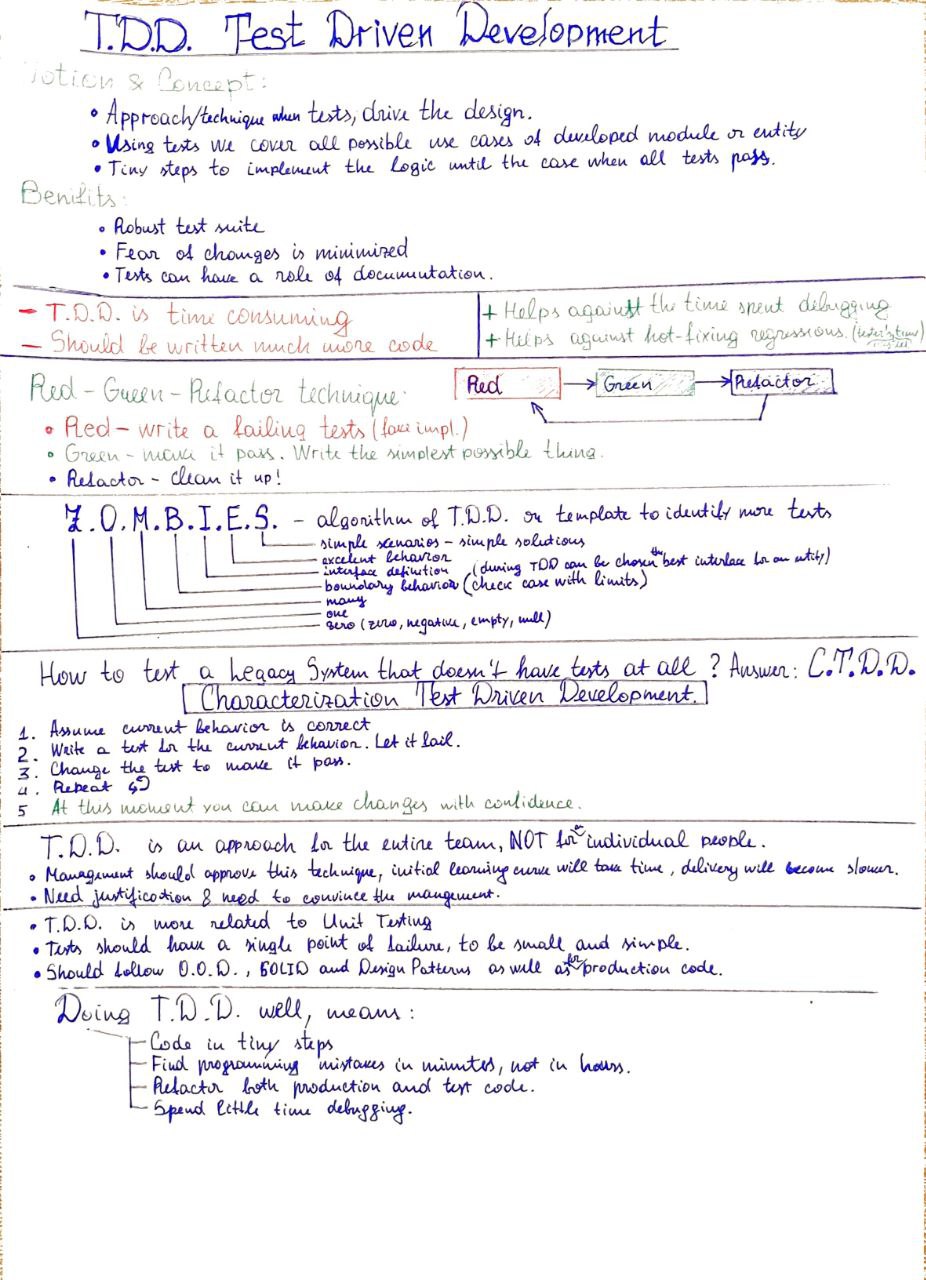 T.D.D. Test Driven Development
Notion & Concept:
• Approach/technique when tests, drive the design.
• Using tests we cover all possible use cases of developed module or entity
• Tiny steps to implement the logic until the case when all tests pass.
Benifits:
• Robust test suite
• Fear of changes is minimized
• Tests can have a role of documutation.
– T.D.D. is time consuming
– Should be written much more code
+ Helps against the time spent debugging
+ Helps against hot-fixing regressions.
Red – Green – Refactor technique:
Red → Green → Refactor
• Red – write a failing tests (fake impl.)
• Green – make it pass. Write the simplest possible thing.
• Refactor – clean it up!
Z.O.M.B.I.E.S. – algorithm of T.D.D. or template to identify more tests
simple scenarios – simple solutions
excelent behavior
interface definition (during TDD can be chosen the best interface for an entity)
boundary behavior (check case with limits)
many
one
zero (zero, negative, empty, null)
How to test a Legacy System that doesn't have tests at all? Answer: C.T.D.D.
Characterization Test Driven Development.
1. Assume current behavior is correct
2. Write a test for the current behavior. Let it fail.
3. Change the test to make it pass.
4. Repeat
5 At this moment you can make changes with confidence.
T.D.D. is an approach for the entire team, NOT for an individual people.
• Management should approve this technique, initial learning curve will take time, delivery will become slower.
• Need justification & need to convince the mangement.
• T.D.D. is more related to Unit Testing
• Tests should have a single point of failure, to be small and simple.
• Should follow O.O.D., SOLID and Design Patterns as well as for production code.
Doing T.D.D. well, means:
– Code in tiny steps
– Find programming mistakes in minutes, not in hours.
– Refactor both production and test code.
– Spend little time debugging.